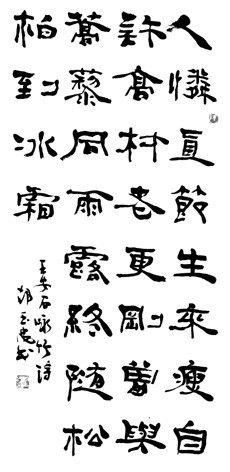 人憐直節生來瘦自
許高材老更剛曾與
蒿藜同雨露終隨松
柏到冰霜
王安石咏竹詩